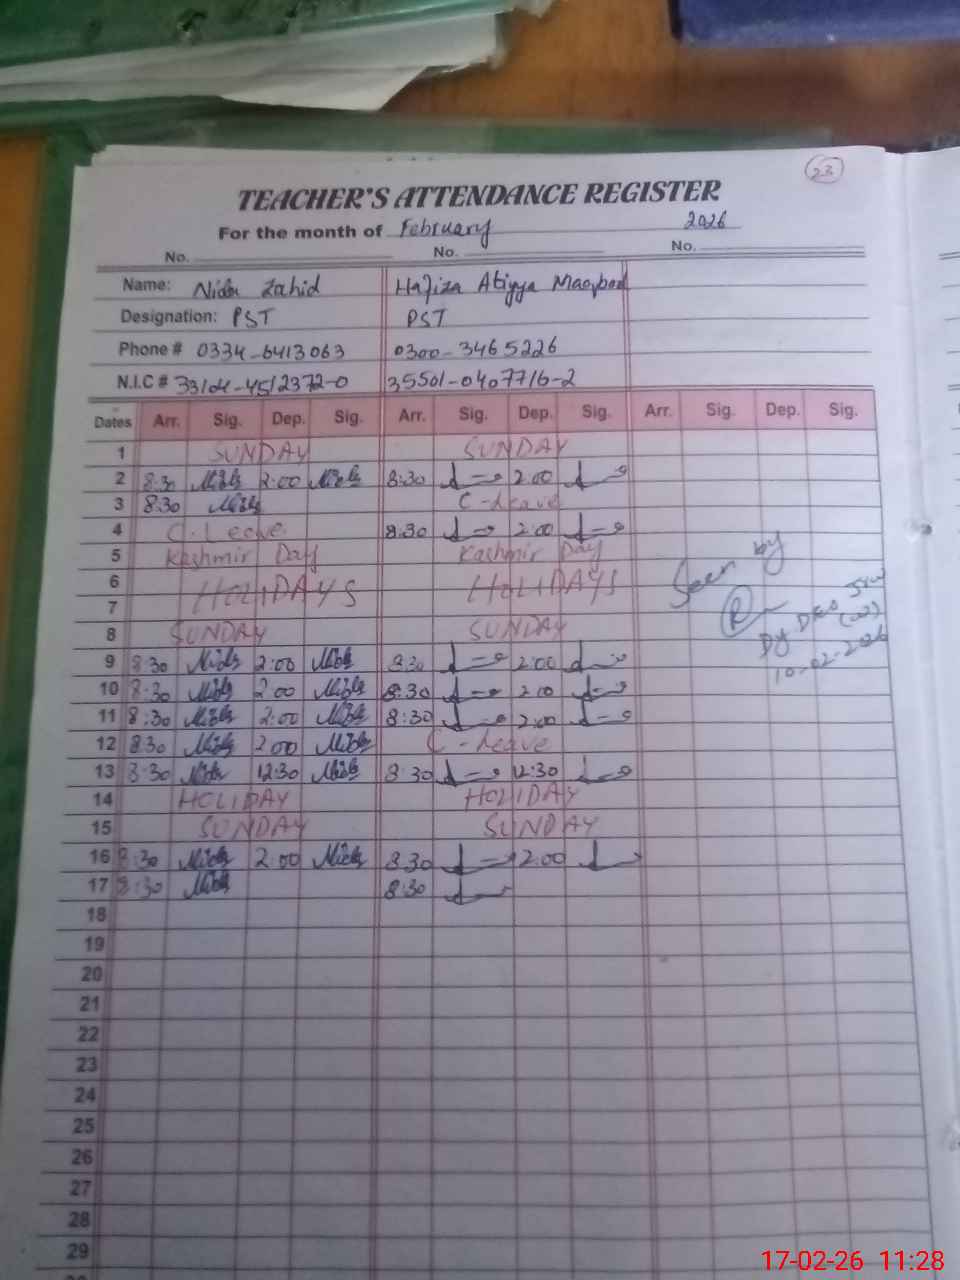 23
TEACHER'S ATTENDANCE REGISTER
For the month of February 2026
No. No. No.
Name: Nida Zahid Hafiza Atiyya Maqbool
Designation: PST PST
Phone # 0334-6413063 0300-3465226
N.I.C # 33104-4512372-0 35501-0407716-2
Dates Arr. Sig. Dep. Sig. Arr. Sig. Dep. Sig. Arr. Sig. Dep. Sig.
1 SUNDAY SUNDAY
2 8:30 Nida 2:00 Nida 8:30 2:00
3 8:30 Nida C-Leave
4 C-Leave 8:30 2:00
5 Kashmir Day Kashmir Day
6 HOLIDAYS HOLIDAYS
7
8 SUNDAY SUNDAY
9 8:30 Nida 2:00 Nida 8:30 2:00
10 8:30 Nida 2:00 Nida 8:30 2:00
11 8:30 Nida 2:00 Nida 8:30 2:00
12 8:30 Nida 2:00 Nida C-Leave
13 8:30 Nida 12:30 Nida 8:30 12:30
14 HOLIDAY HOLIDAY
15 SUNDAY SUNDAY
16 8:30 Nida 2:00 Nida 8:30 2:00
17 8:30 Nida 8:30
18
19
20
21
22
23
24
25
26
27
28
29
Seen by
Dy DEO
10-02-2026
17-02-26 11:28